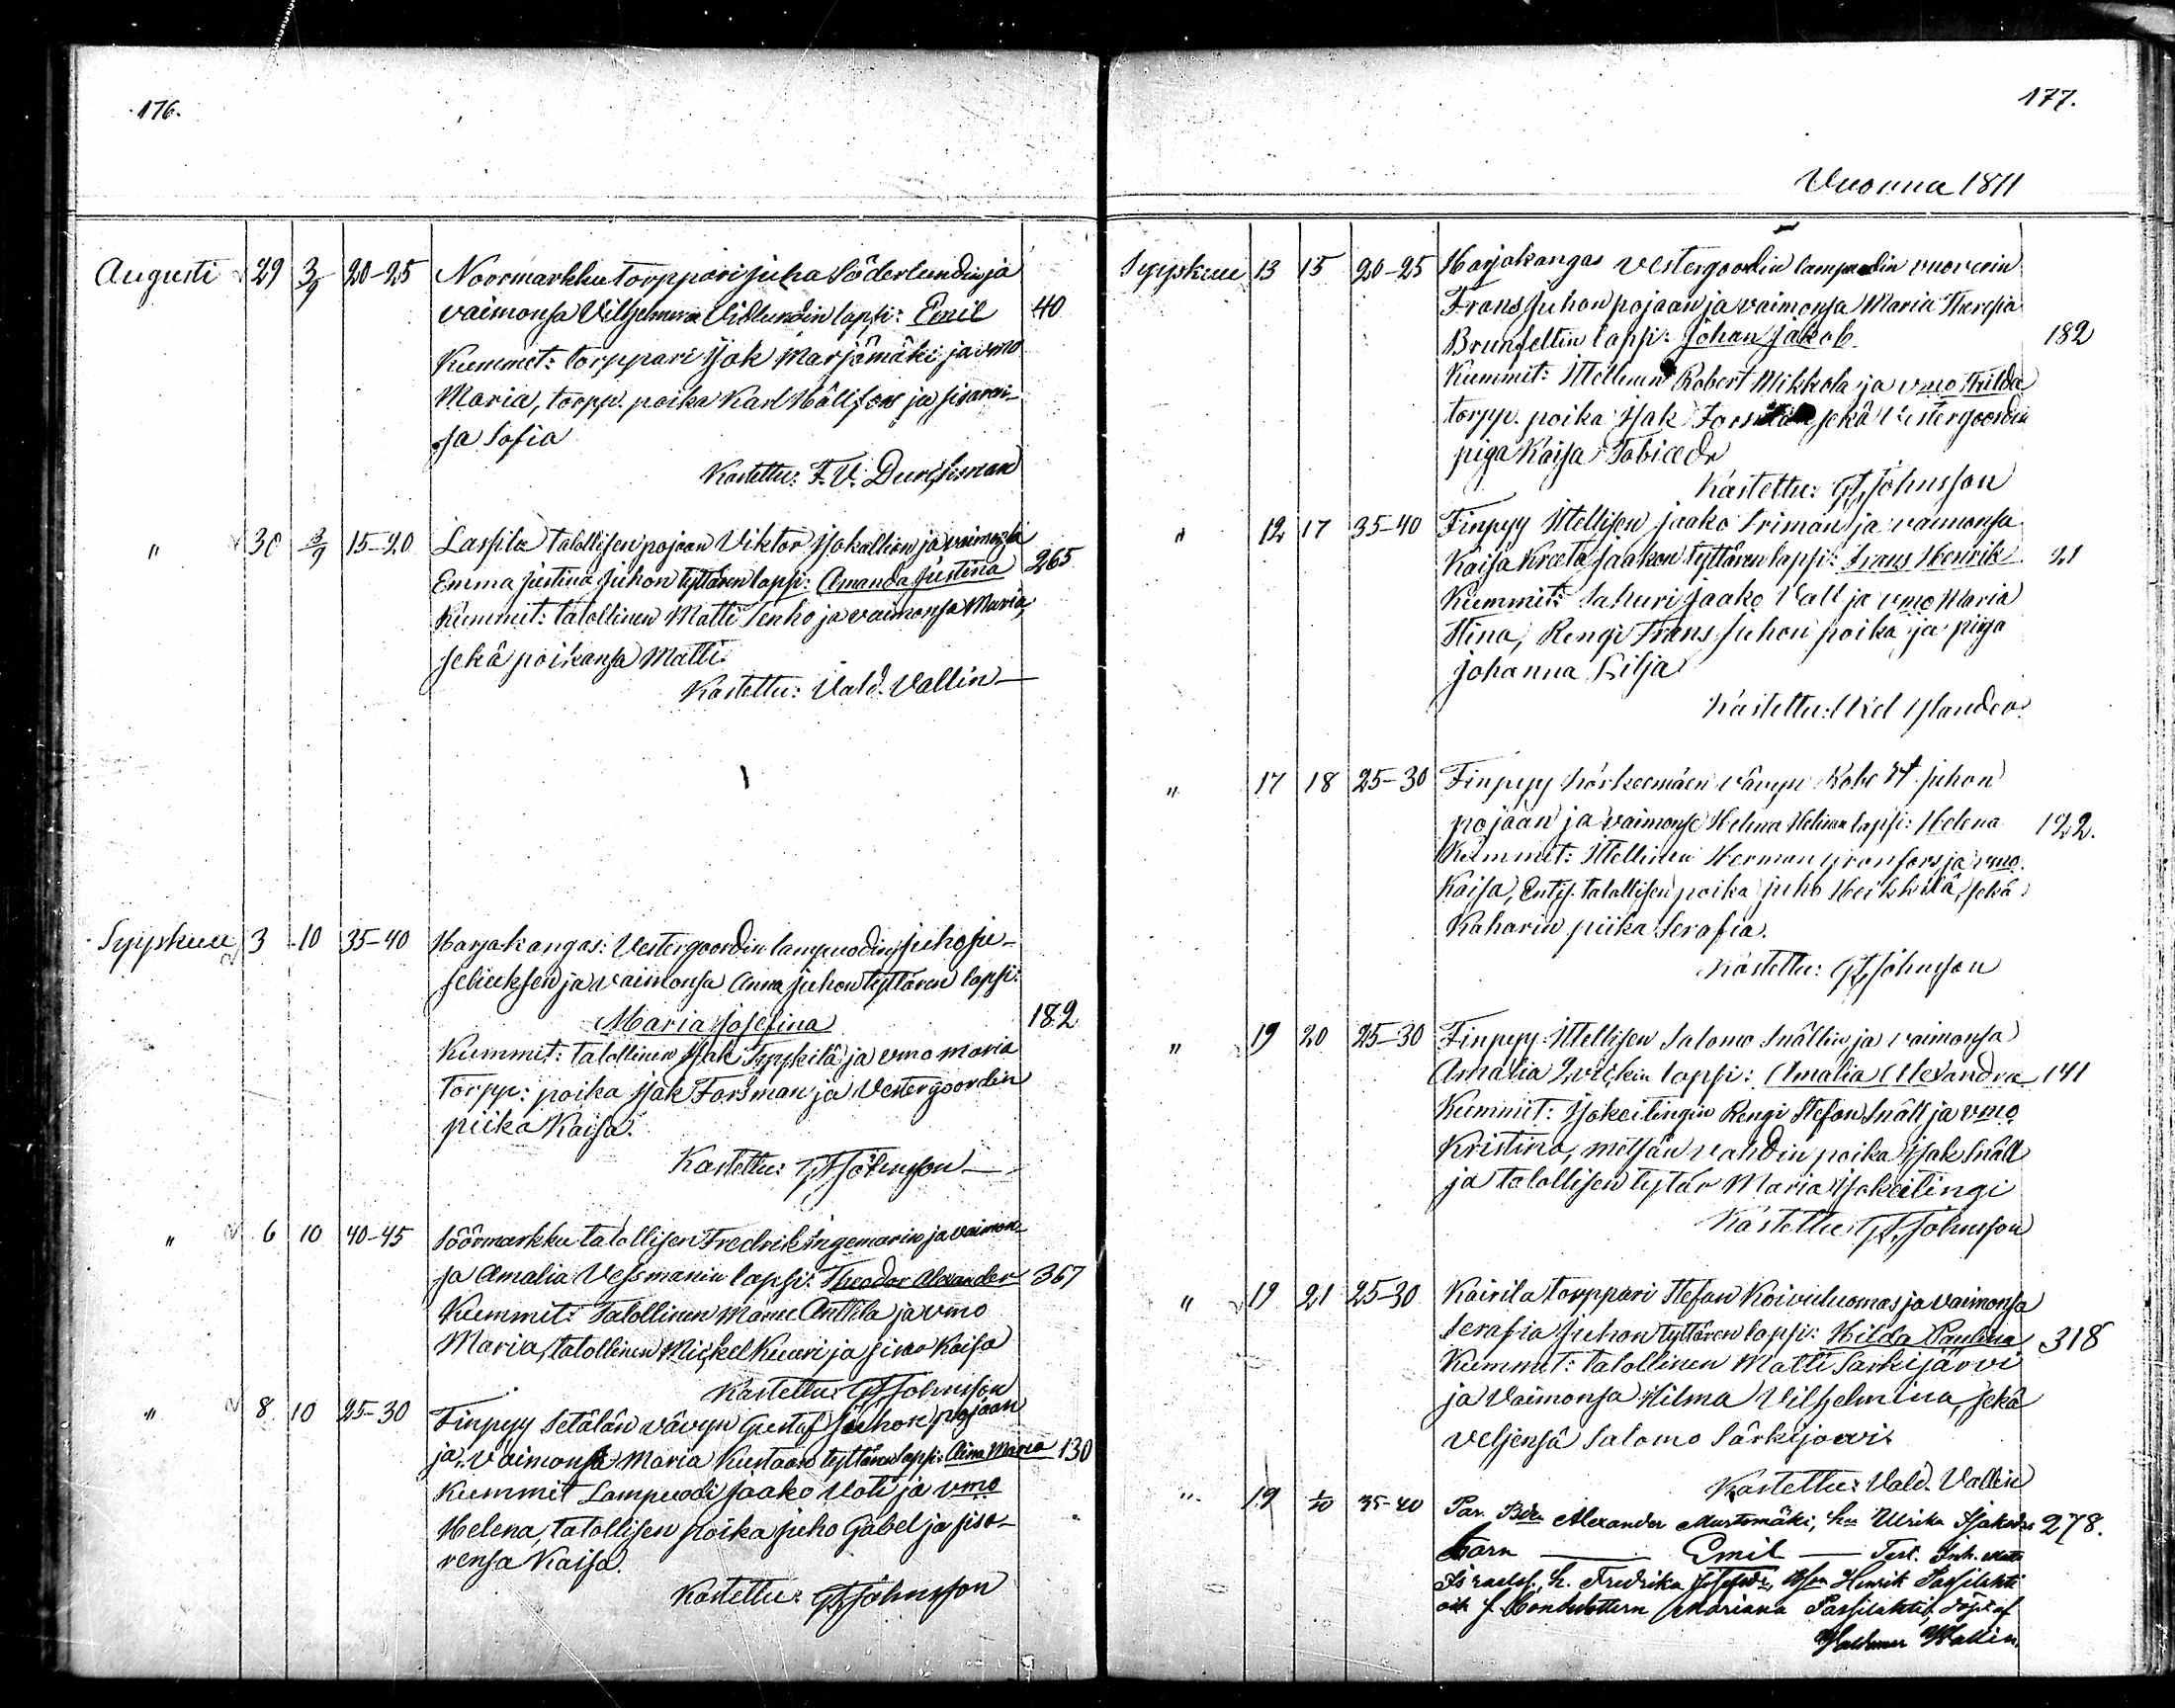 176.
Augusti 29 3/9 20-25 Noormarkku torppari Juha Söderlundin ja
vaimonsa Vilhelmina Vidlundin lapsi: Emil 40
Kummit: torppari Isak Marjamäki ja vmo
Maria, torpp. poika Karl Hällfors ja sisaren-
sa Sofia
Kastettu: F. V. Durchman
" 30 3/9 15-20 Lassila talollisen pojaan Viktor Isokallion ja vaimonsa
Emma Justina Juhon tyttären lapsi: Amanda Justina 265
Kummit: talollinen Matti Tenho ja vaimonsa Maria,
sekä poikansa Matti.
Kastettu: Vald. Vallin
Syyskuu 3 10 35-40 Harjakangas: Vestergoordin lampuodin Juho Ju-
seliuksen ja vaimonsa Anna Juhon tyttären lapsi:
Maria Josefina 182
Kummit: talollinen Isak Sypkilä ja vmo Maria
torpp: poika Isak Forsman ja Vestergoordin
piika Kaisa.
Kastettu: G F Johnsson
" 6 10 40-45 Söörmarkku talollisen Fredrik Ingemarin ja vaimon-
sa Amalia Vessmanin lapsi: Theodor Alexander 367
Kummit: Talollinen Manu Anttila ja vmo
Maria, talollinen Mickel Kuuri ja vmo Kaisa
Kastettu: G F Johnsson
" 8 10 25-30 Finpyy Setälän vävyn Gustaf Juhon pojaan
ja vaimonsa Maria Kustaan tyttären lapsi: Alina Maria 130
Kummit Lampuodi Jaako Uoti ja vmo
Helena, talollisen poika Juho Gabel ja sisa-
rensa Kaisa.
Kastettu: G F Johnsson
177.
Vuonna 1871
Syyskuu 13 15 20-25 Harjakangas Vestergoordin lampuodin vuoverin
Frans Juhon pojaan ja vaimonsa Maria Theresia
Brunfeltin lapsi: Johan Jakob 182
Kummit: Itellinen Robert Mikkola ja vmo Hilda
torpp. poika Isak Forsman sekä Vestergoordin
piga Kaisa Tobiaedr
Kastettu: G F Johnsson
" 12 17 35-40 Finpyy Itellisen Jaako Friman ja vaimonsa
Kaisa Kreeta Jaakon tyttären lapsi: Frans Henrik 21
Kummit: Sahuri Jaako Vall ja vmo Maria
Stina, Rengi Frans Juhon poika ja piga
Johanna Lilja
Kastettu: Axel Ilander
" 17 18 25-30 Finpyy Härkeemäen vävyn Robert Juhon
pojaan ja vaimonse Helena Helinin lapsi: Helena 122.
Kummit: Itellinen Herman Granfors ja vmo
Kaisa, Entis. talollisen poika Juho Heikkilä, sekä
Kaharin piika Serafia.
Kastettu: G F Johnsson
" 19 20 25-30 Finpyy: Itellisen Salomo Snällin ja vaimonsa
Amalia Qvickin lapsi: Amalia Alexandra 141
Kummit: Isokeitingin Rengi Stefan Snäll ja vmo
Kristina, metsän vahdin poika Isak Snäll
ja talollisen tytär Maria Isokeitingi
Kastettu: G F Johnsson
" 19 21 25-30 Kairila torppari Stefan Koivuluomas ja vaimonsa
Serafia Juhon tyttären lapsi: Hilda Paulina 318
Kummit: talollinen Matti Särkijärvi
ja Vaimonsa Hilma Vilhelmina, sekä
veljensä Salomo Särkijärvi.
Kastettu: Vald. Vallin
" 19 1/10 35-40 Par. Bdn Alexander Mustamäki, hu Ulrika Isaksdr 278.
barn Emil Test. Inh. Matts
Israelss., h. Fredrika Josefsdr, Henrik Passilahti
och Bondedottern Mariana Passilahti, döpt af
Waldemar Wallin